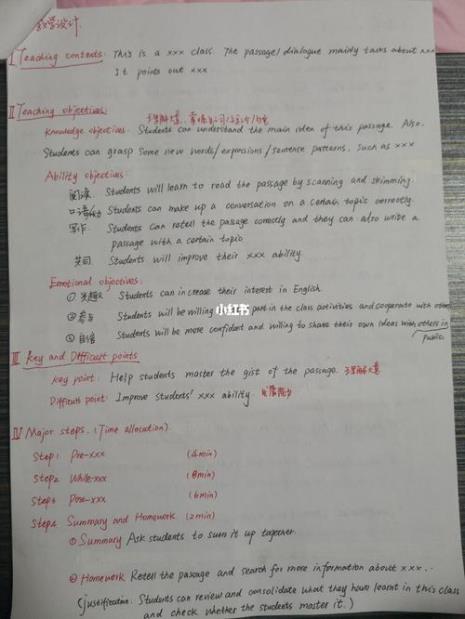 教学设计
I Teaching contents: This is a xxx class. The passage/dialogue mainly talks about xxx
It points out xxx
II Teaching objectives:
理解大意, 掌握
Knowledge objectives: Students can understand the main idea of this passage. Also,
Students can grasp some new words/expressions/sentence patterns, such as xxx
Ability objectives:
阅读. Students will learn to read the passage by scanning and skimming.
口语 Students can make up a conversation on a certain topic correctly.
写作. Students can retell the passage correctly and they can also write a
passage with a certain topic
共同. Students will improve their xxx ability.
Emotional objectives:
① 兴趣 Students can increase their interest in English
② 参与 Students will be willing part in the class activities and cooperate with others
小红书
③ 自信 Students will be more confident and willing to share their own ideas with others in
public.
III Key and Difficult points
Key point: Help students master the gist of the passage. 理解大意
Difficult point: Improve students' xxx ability.
IV Major steps. (Time allocation)
Step1 Pre-xxx (4min)
Step2 While-xxx (8min)
Step3 Post-xxx (6min)
Step4 Summary and Homework (2min)
① Summary Ask students to sum it up together.
② Homework Retell the passage and search for more information about xxx.
(Justification. Students can review and consolidate what they have learnt in this class
and check whether the students master it.)